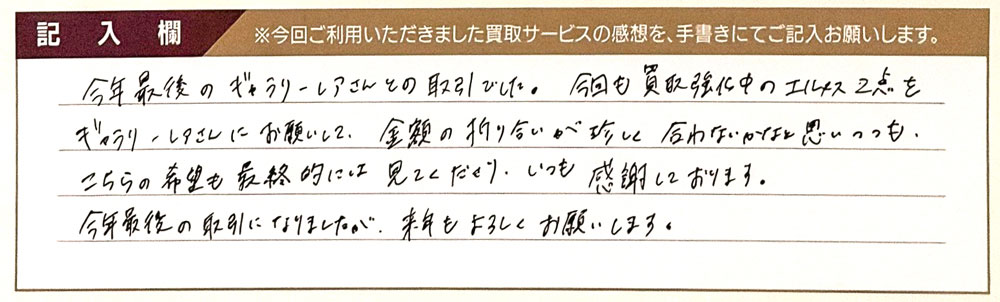 記入欄
※今回ご利用いただきました買取サービスの感想を、手書きにてご記入お願いします。
今年最後のギャラリーレアさんとの取引でした。今回も買取強化中のエルメス2点を
ギャラリーレアさんにお願いして、金額の折り合いが珍しく合わないかなと思いつつも、
こちらの希望も最終的には見てくださり、いつも感謝しております。
今年最後の取引になりましたが、来年もよろしくお願いします。